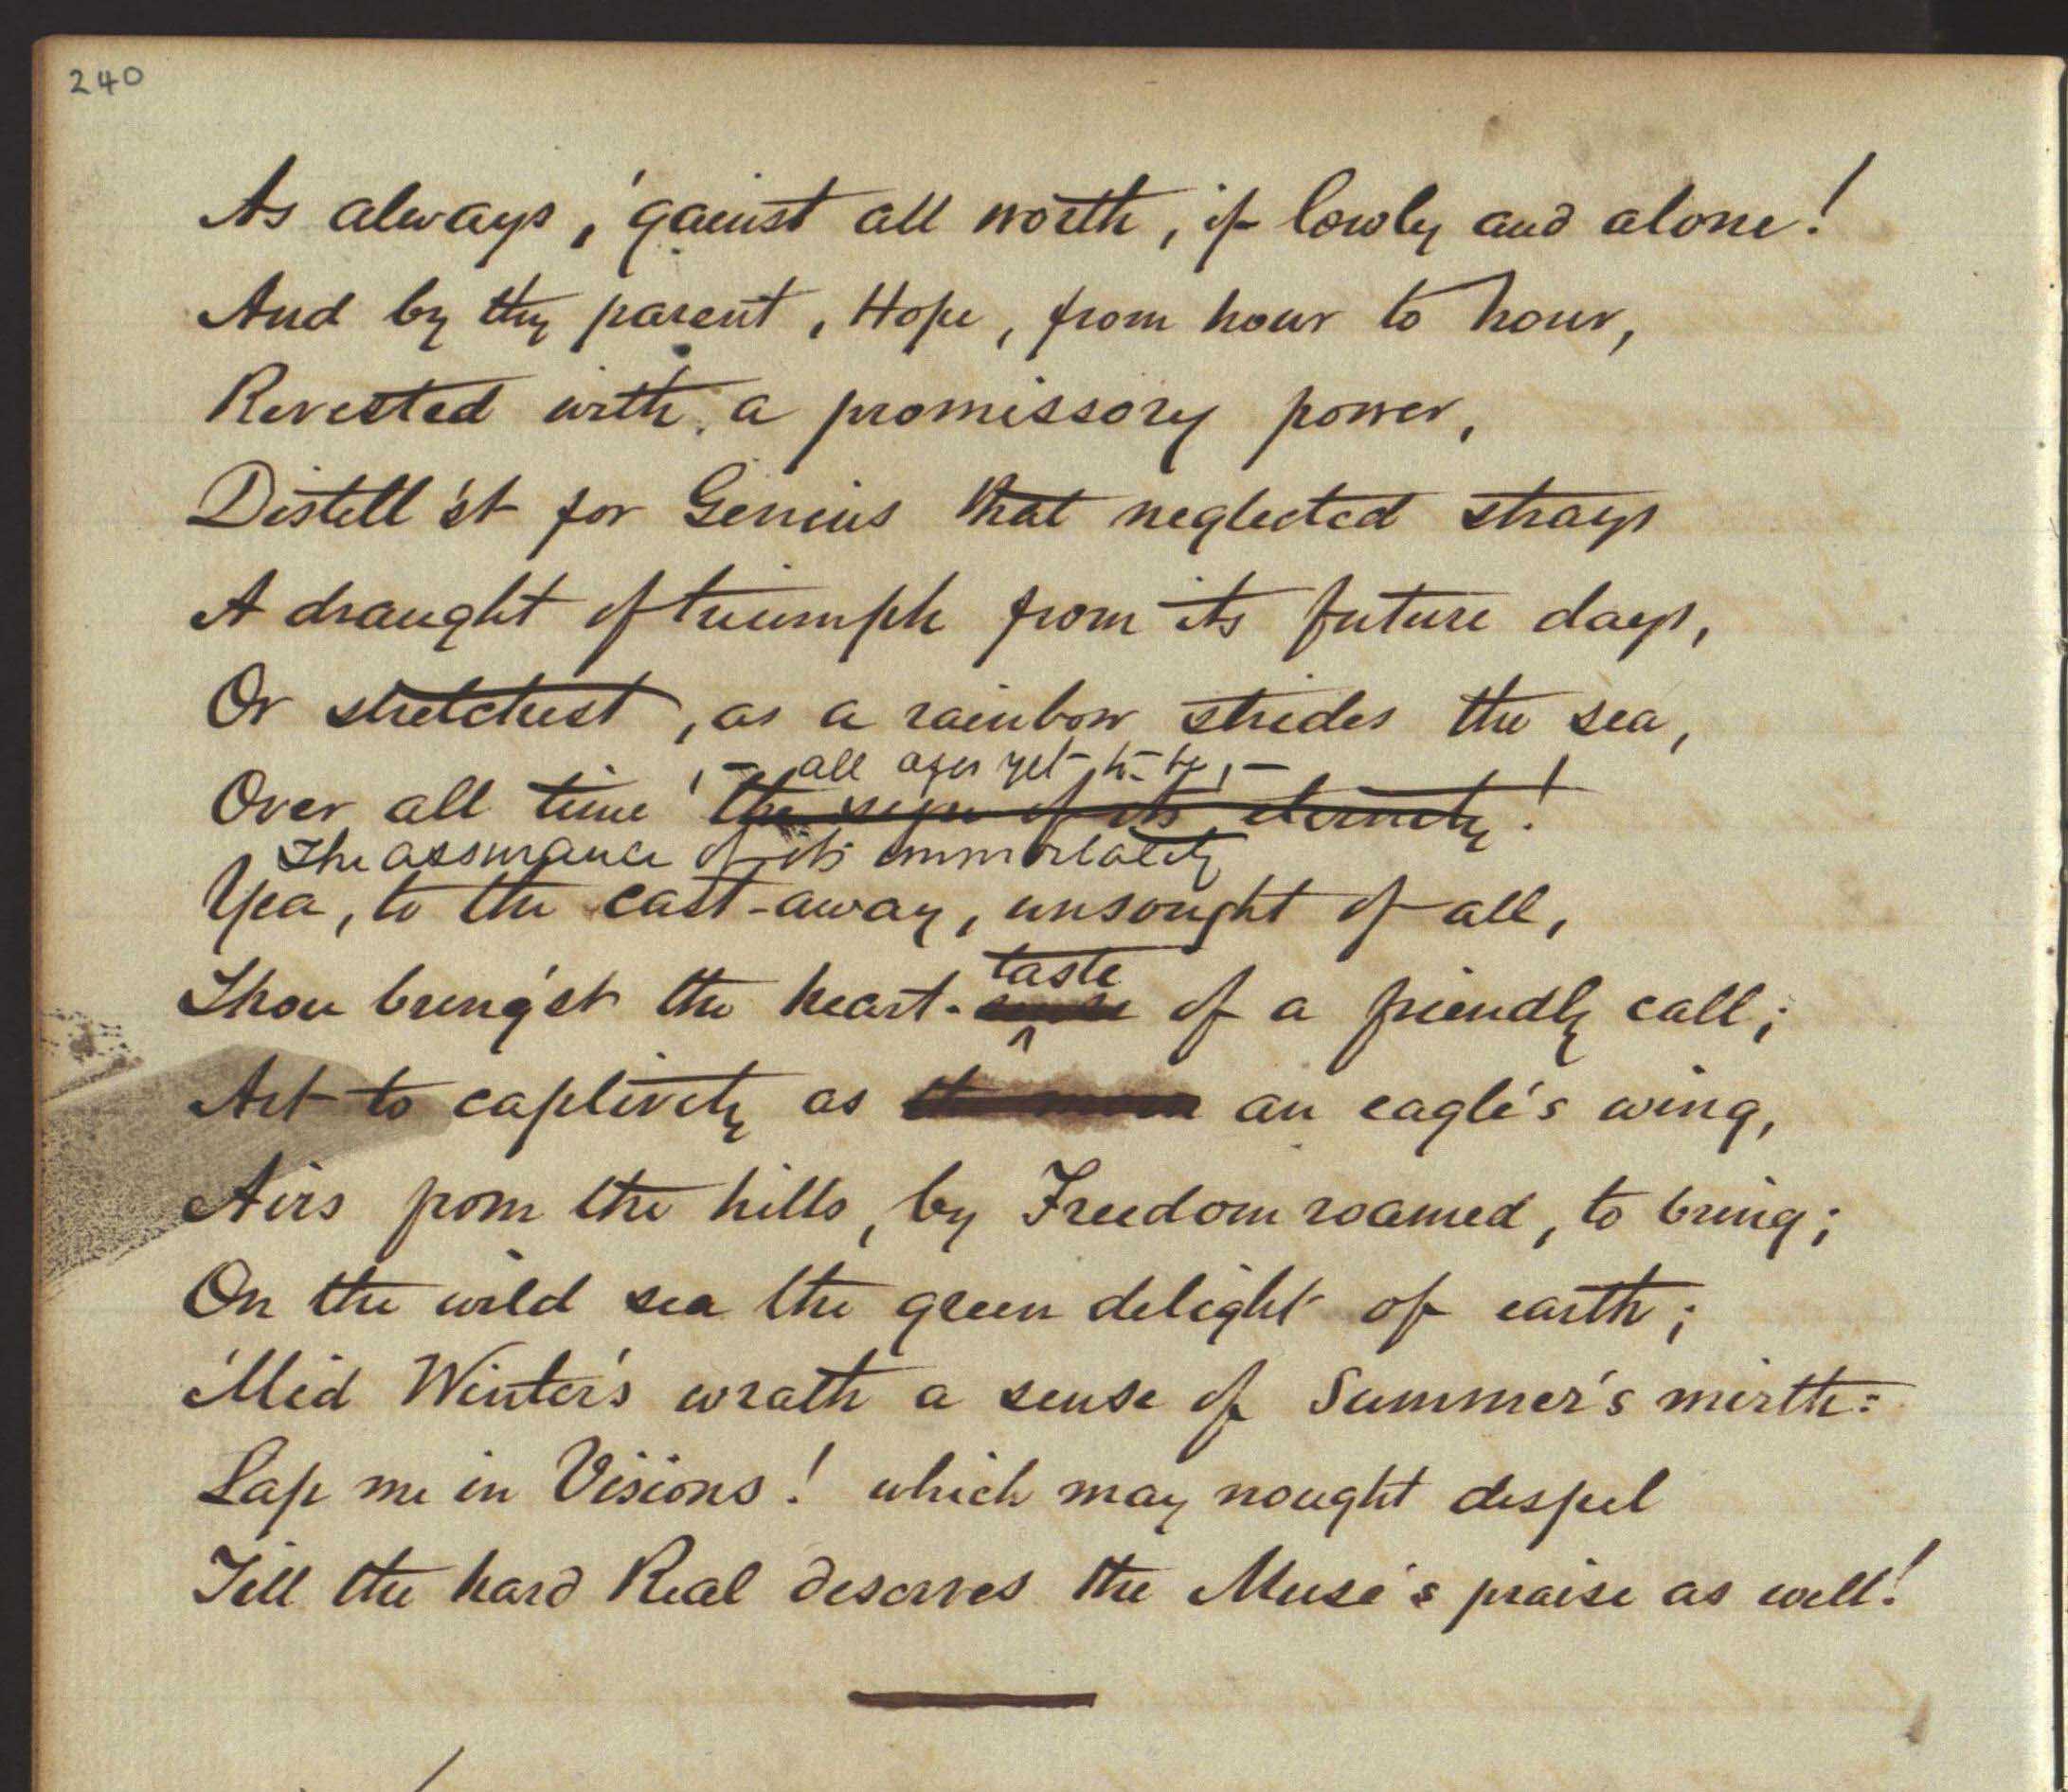 240
As always, 'gainst all worth, if lowly and alone!
And by thy parent, Hope, from hour to hour,
Revested with a promissory power,
Distill'st for Genius that neglected strays
A draught of triumph from its future days,
Or stretchest, as a rainbow strides the sea,
all ages yet to be,—
Over all time, the sign of its eternity!
The assurance of its immortality
Yea, to the cast-away, unsought of all,
taste
Thou bring'st the heart-sense of a friendly call;
Art to captivity as an eagle's wing,
Airs from the hills, by Freedom roamed, to bring;
On the wild sea the green delight of earth;
'Mid Winter's wrath a sense of Summer's mirth:
Lap me in Visions! which may nought dispel
Till the hard Real deserves the Muse's praise as well!